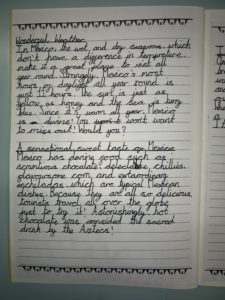 Wonderful Weather
In Mexico, the wet and dry seasons, which
don't have a difference in temperature,
make it a great place to visit all
year round. Strangely, Mexico's most
hours of daylight all year round is
just 11 hours. The sun is just as
yellow as honey and the sea is very
blue. Since it's warm all year, Mexico
is desire! You won't want
to miss out! Would you?
A sensational, sweet taste of Mexico
Mexico has daring food such as
scrumptious chocolate, delectable chillies,
flavoursome corn and extraordinary
enchiladas, which are typical Mexican
dishes. Because they are all so delicious,
tourists travel all over the globe
just to try it! Astonishingly, hot
chocolate was consided the sacred
drink by the Aztecs!